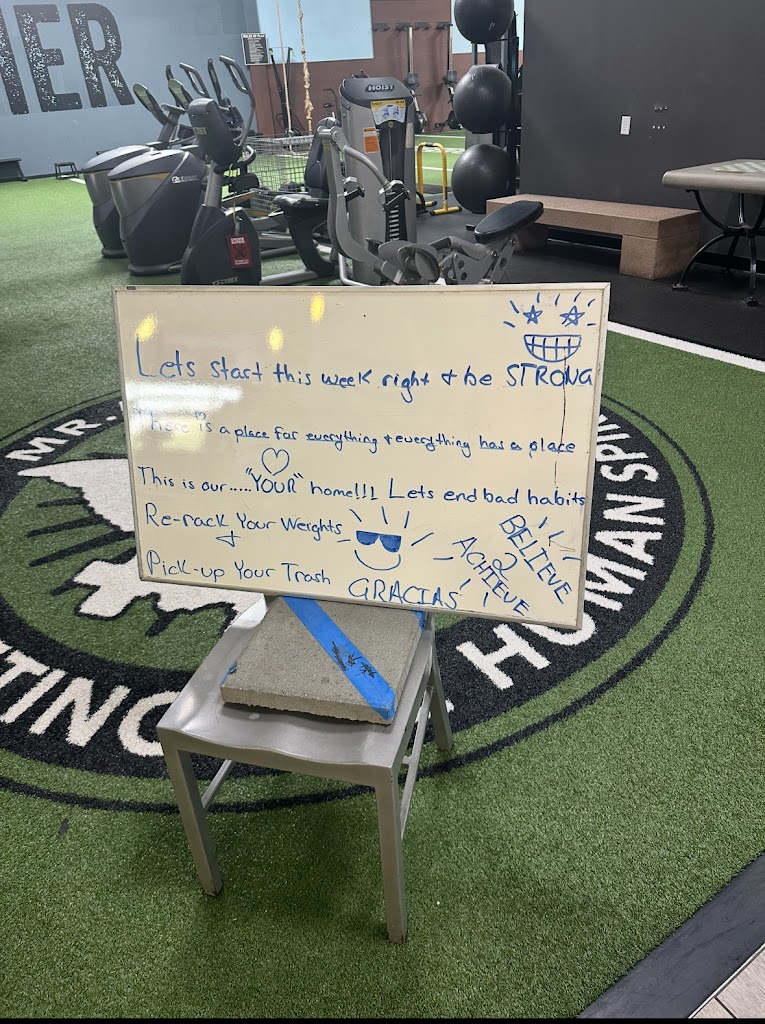 IER
HOIST
Lets start this week right & be STRONG
There is a place for everything & everything has a place
This is our....."YOUR" home!!! Lets end bad habits
Re-rack Your Weights
&
Pick-up Your Trash
GRACIAS
BELIEVE
2
ACHIEVE
MR.
HUMAN SPI
TING